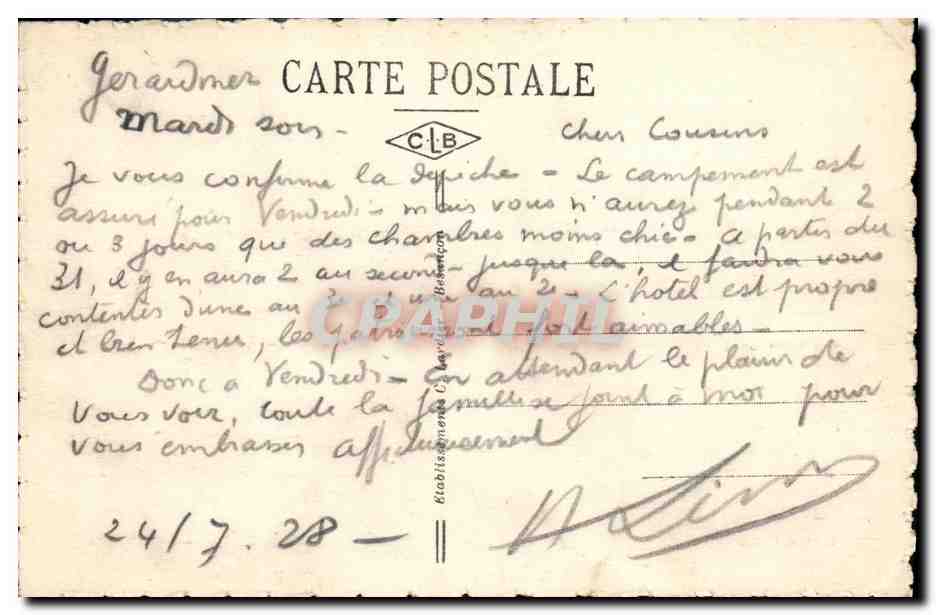 Gerardmer CARTE POSTALE
Mardi soir -
C.L.B
Chers Cousins
Je vous confirme la dépêche - Le campement est
assuré pour Vendredi - mais vous n'aurez pendant 2
ou 3 jours que des chambres moins chic - a partir du
31, il y en aura 2 au second - jusque là, il faudra vous
contenter d'une au au 2e - L'hotel est propre
et bien tenu, les sont fort aimables -
Donc a Vendredi - En attendant le plaisir de
vous voir, toute la famille se joint à moi pour
vous embrasser affectueusement
24/7.28 -
Etablissements C. Lardier - Besançon
CPARPHIL